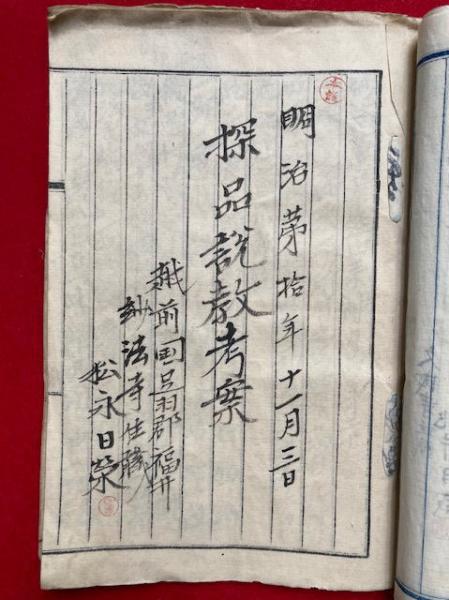 明治第拾年十一月三日
探品説教考案
越前国足羽郡福井
妙法寺住職
松永日栄